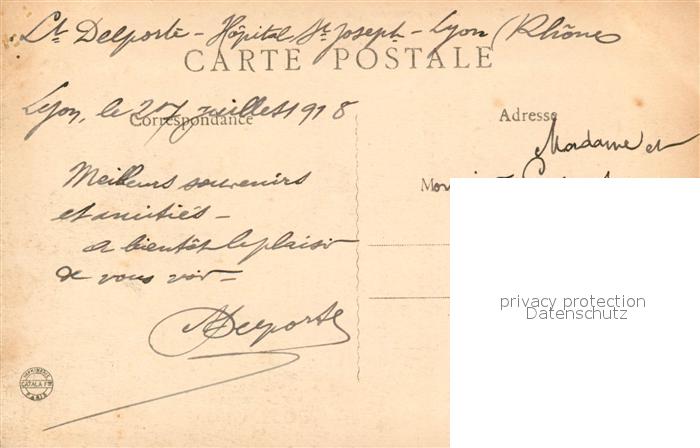 Lt Delporte - Hôpital St Joseph - Lyon (Rhône)
CARTE POSTALE
Lyon, le 27 juillet 1918
Correspondance
Adresse
Madame et
Meilleurs souvenirs
et amitiés -
a bientôt le plaisir
de vous voir -
Delporte
privacy protection
Datenschutz
IMPRIMERIE
CATALA FRES
PARIS